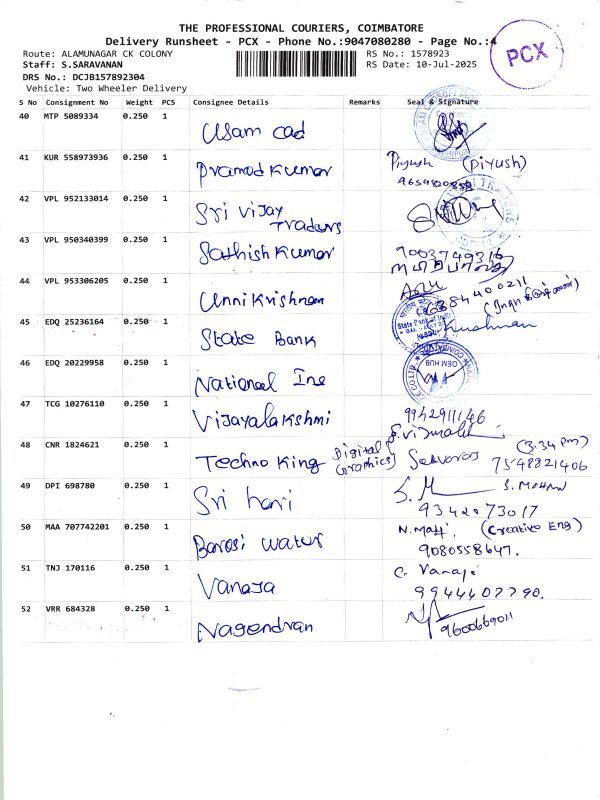 THE PROFESSIONAL COURIERS, COIMBATORE
Delivery Runsheet - PCX - Phone No.:9047080280 - Page No.:4
PCX
Route: ALAMUNAGAR CK COLONY RS No.: 1578923
Staff: S.SARAVANAN RS Date: 10-Jul-2025
DRS No.: DCJB157892304
Vehicle: Two Wheeler Delivery
S No Consignment No Weight PCS Consignee Details Remarks Seal & Signature
40 MTP 5089334 0.250 1 Usam cad
41 KUR 558973936 0.250 1 Pramod Kumar Piyush (Piyush)
42 VPL 952133014 0.250 1 Sri Vijay Traders
43 VPL 950340399 0.250 1 Sathish Kumar 9003749316
44 VPL 953306205 0.250 1 Unni Krishnan
45 EDQ 25236164 0.250 1 State Bank State Bank of India
46 EDQ 20229958 0.250 1 National Ine OEM HUB
47 TCG 10276110 0.250 1 Vijayalakshmi 9942911146
48 CNR 1824621 0.250 1 Techno King (Digital Graphics) (3.34 pm) 7548821406
49 DPI 698780 0.250 1 Sri hari S. MOHAN
9342073017
50 MAA 707742201 0.250 1 Barosi water (Creative Eng)
9080558647.
51 TNJ 170116 0.250 1 Vanaja C. Vanaja
9944407790.
52 VRR 684328 0.250 1 Nagendran 9600669011